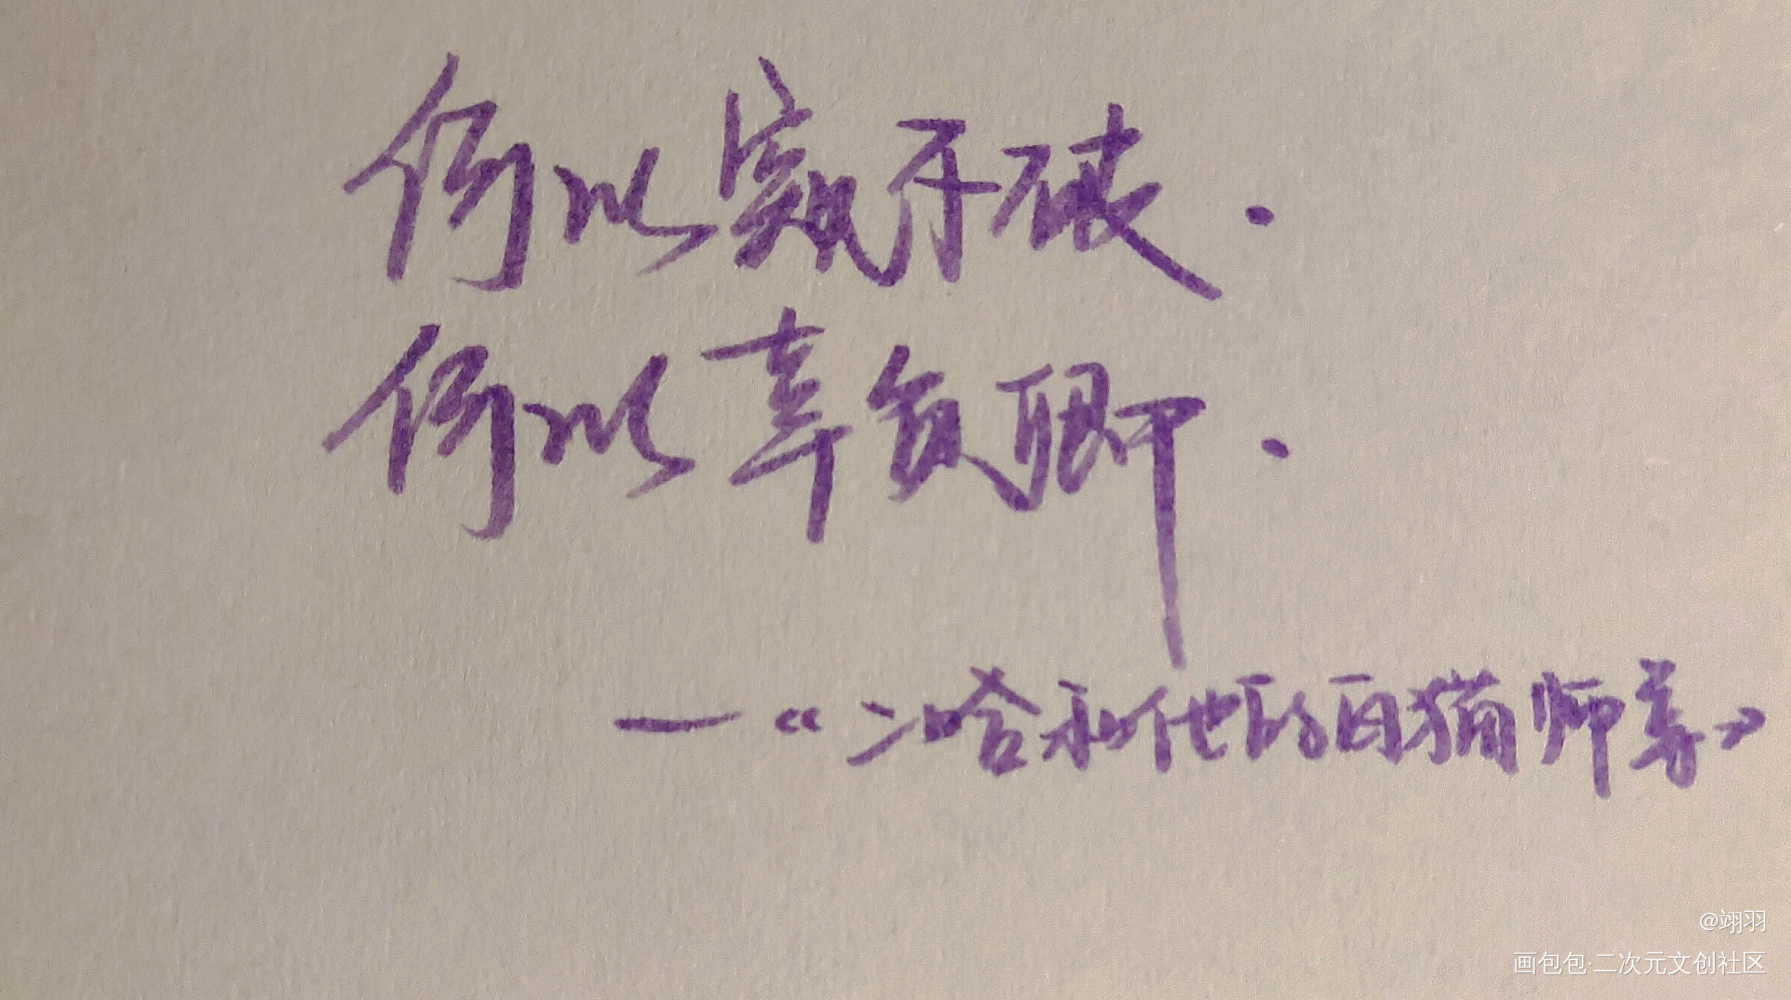 何以窥不破.
何以辜负卿.
—《二哈和他的白猫师尊》
@翊羽
画包包·二次元文创社区